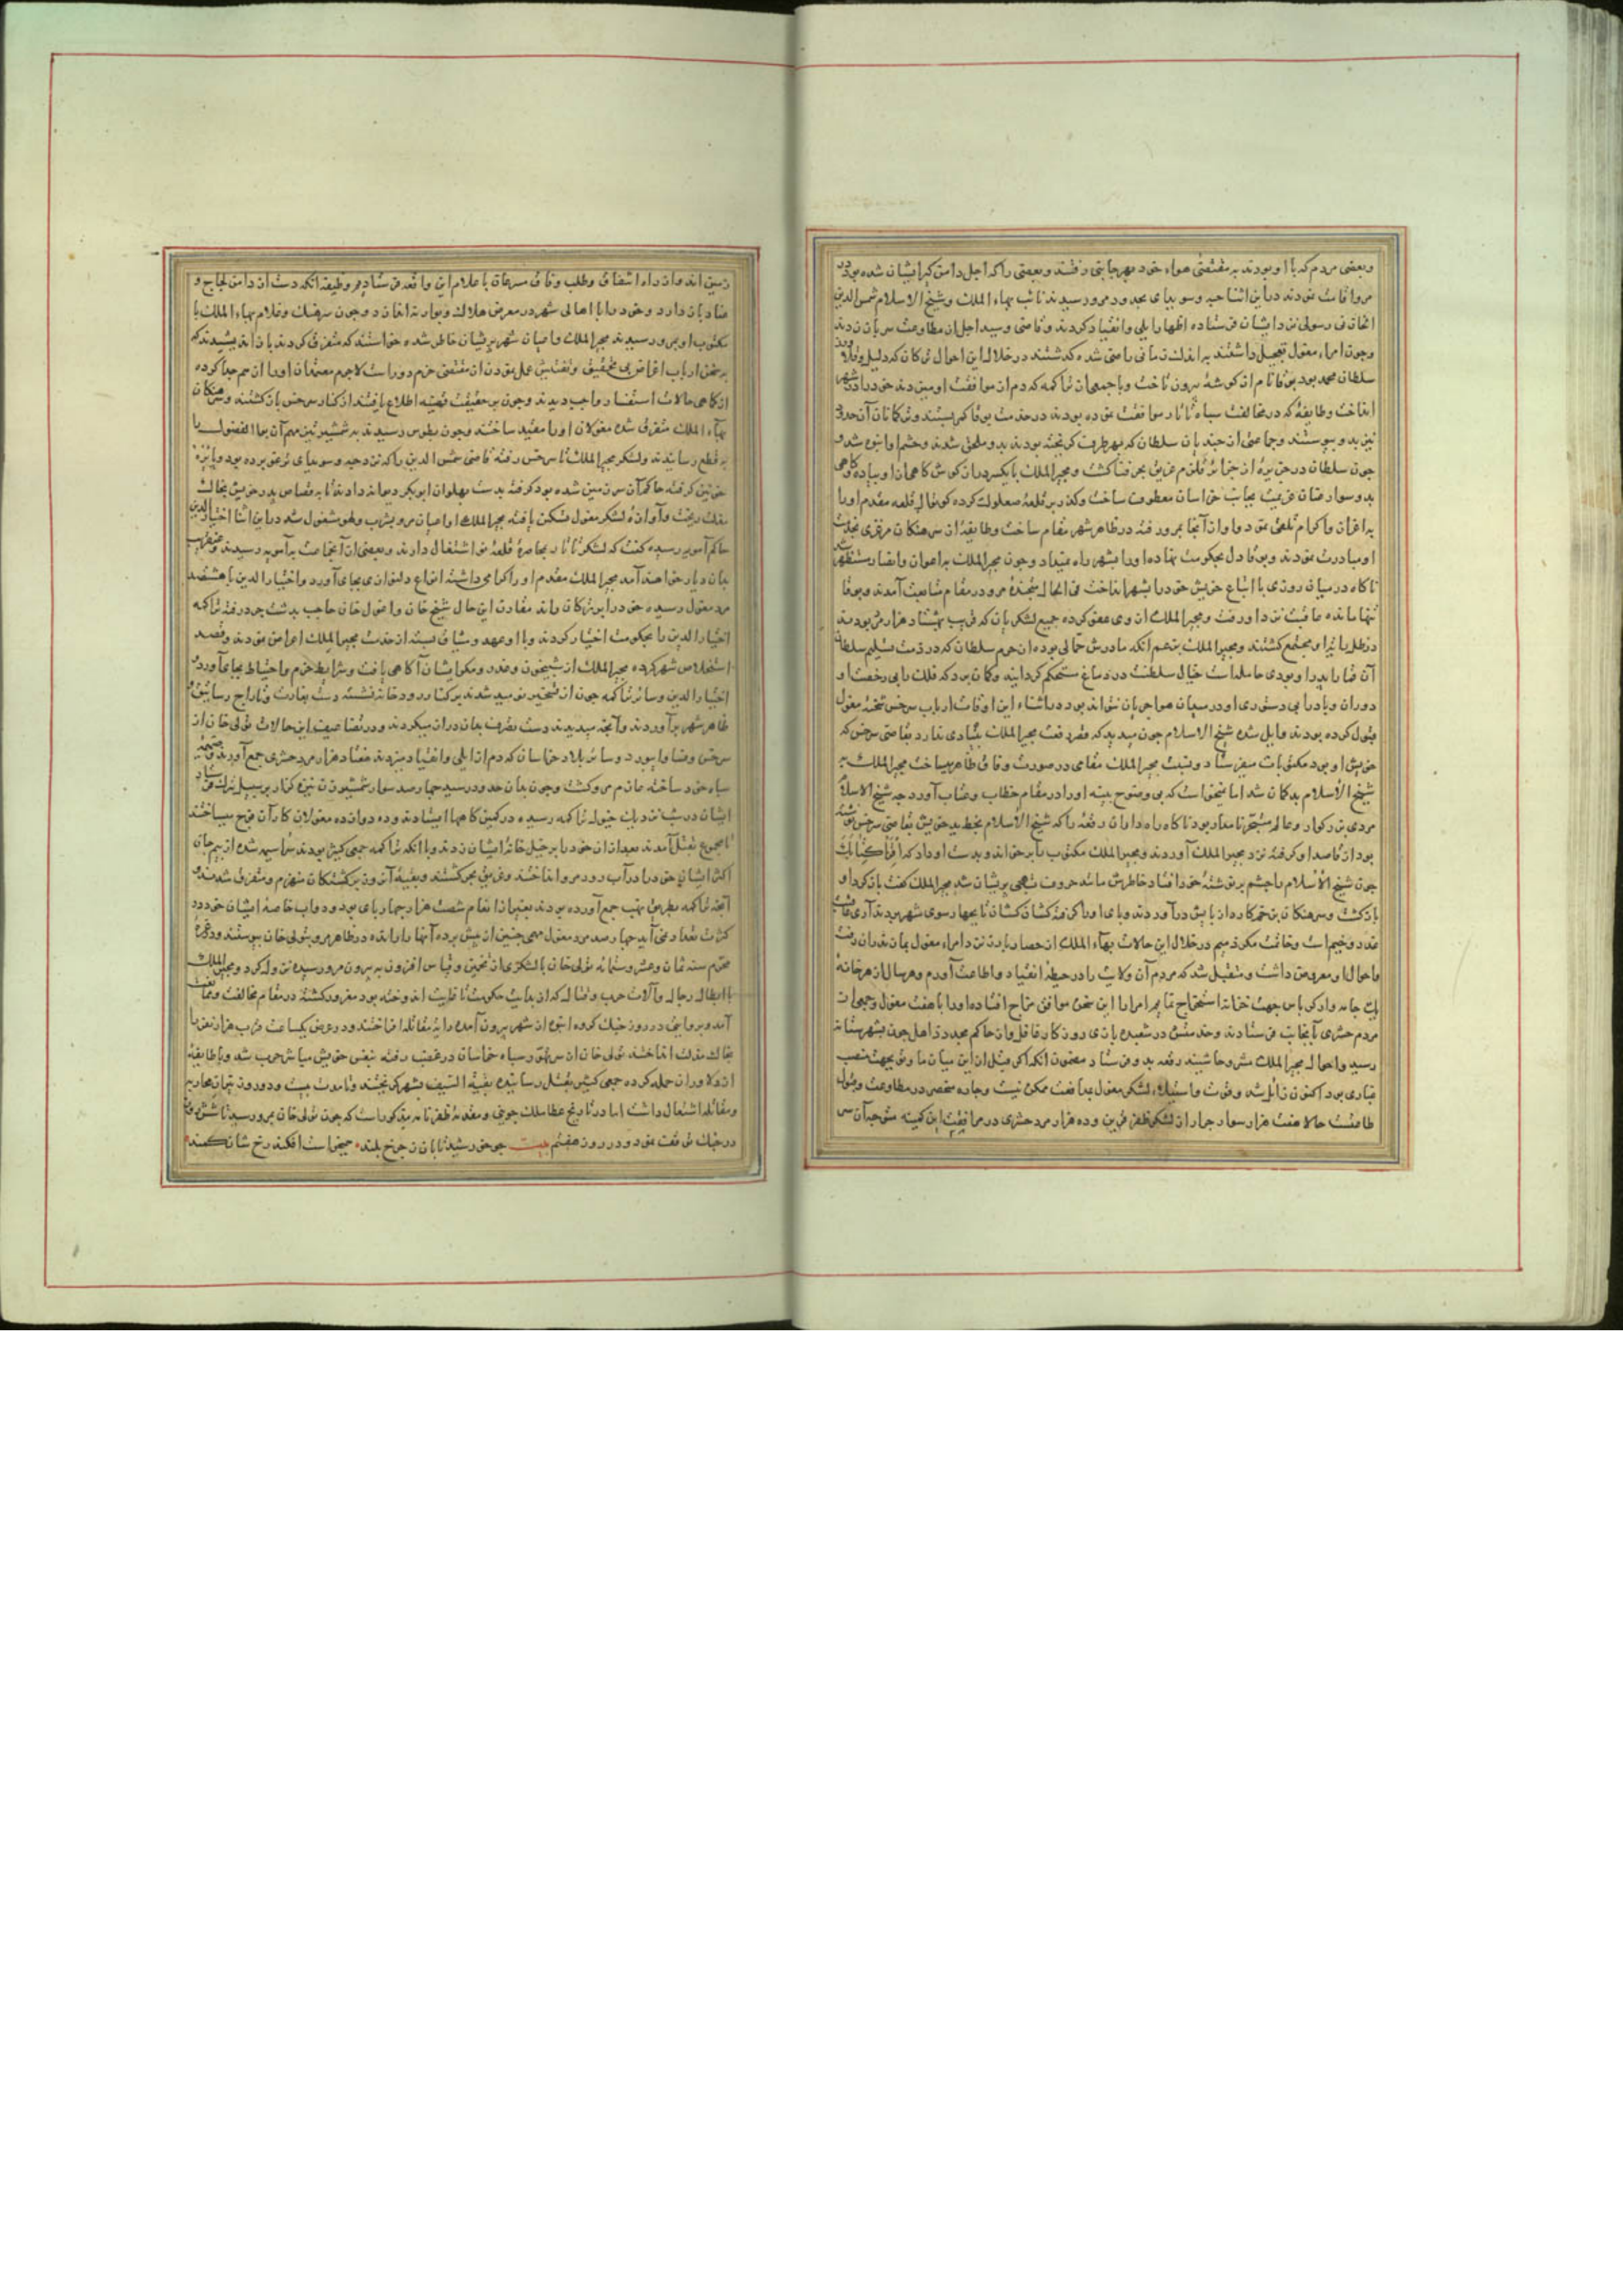 و بعضی مردم که با او بودند به مقتضی هواء خود بهر جانبی رفتند و بعضی را که اجل دامن کیر ایشان شده بود در
مرو اقامت نمودند در این اثنا جبه و سوبیای بحدود مرو رسیدند نائب بهاء الملک و شیخ الاسلام شمس الدین
رسولی نزد ایشان فرستاده اظهار ایلی و انقیاد کردند و قاضی و سید اجل از مطاوعت سر باز زدند
و چون امراء مغول تعجیل داشتند به اندک نزلی راضی شده کذشتند در خلال این احوال ترکمانی که دلیل و قلاوز
سلطان محمد بود بوقا نام از کوشهٔ بیرون تاخت و با جمعی از تراکمه که دم از موافقت او میزدند خود را در شهر
انداخت و طایفهٔ که در مخالفت سپاه تاتار موافقت نموده بودند در خدمت بوقا کمر بستند و ترکمانان آن حدود
نیز بدو پیوستند و جماعتی از جندیان سلطان که بهر طرف کریخته بودند بدو ملحق شدند و حشم او انبوه شد و
چون سلطان در جزیرهٔ از جزائر قلزم غریق بحر فنا کشت و مجیر الملک بایکسر دراز کوش کاهی از او پیاده و کاهی
بدو سوار عنان عزیمت بجانب خراسان معطوف ساخت و کذر بر قلعهٔ صعلوک کرده کوتوال قلعه مقدم او را
به اعزاز و اکرام تلقی نمود و او از آنجا بمرو رفته در ظاهر شهر مقام ساخت و طایفهٔ از سرهنکان مروزی بخدمت
او مبادرت نمودند و بوقا دل بحکومت نهاده او را بشهر راه نمیداد و چون مجیر الملک به اعوان و انصار مستظهر شد
ناکاه در میان روزی با اتباع خویش خود را بشهر انداخت فی الحال متجندهٔ مرو در مقام متابعت آمدند و بوقا
تنها مانده عاقبت نزد او رفت و مجیر الملک از وی عفو کرده جمیع لشکریان که قریب هفتاد هزار مرد بودند
در ظل رایت او مجتمع کشتند و مجیر الملک بتوهم آنکه مادرش حمالی بوده از حرم سلطان که در وقت تسلیم سلطان
آن ضعیفه را بپدر او بودی حامله است خیال سلطنت در دماغ مستحکم کردانید و کمان برد که فلک را بی رخصت او
دوران و باد را بی دستوری او در میان هوا جریان نتواند بود در اثناء این اوقات ارباب سرخس شحنهٔ مغول
قبول کرده بودند و ایل شده شیخ الاسلام چون میدید که مقر دولت مجیر الملک ثباتی ندارد بقاضی سرخس که
خویش او بود مکتوبات میفرستاد و نسبت بمجیر الملک مقامی در صورت وفاق ظاهر میساخت مجیر الملک به
شیخ الاسلام بدکمان شد اما نمیخواست که بی وضوح بینه او را در مقام خطاب و عتاب آورد چه شیخ الاسلام
مردی بزرکوار و عالم متبحر نامدار بود تا کاه راه داران رقعهٔ را که شیخ الاسلام بخط ید خویش بقاضی سرخس نوشته
بود از قاصد او کرفته نزد مجیر الملک آوردند و مجیر الملک مکتوب را برخواند و بدست او داد که اقرأ کتابک
چون شیخ الاسلام را چشم بر نوشتهٔ خود افتاد خاطرش مانند حروف تهجی پریشان شد مجیر الملک کفت بازکرد او
بازکشت و سرهنکان بزخم کارد از پایش درآوردند و پای او را کرفته کشان کشان تا بچهار سوی شهر بردند آری عاقبت
غدر وخیم است و خاتمت مکر ذمیم در خلال این حالات بهاء الملک از حصار یازر نزد امراء مغول بمازندران رفت
و احوال او معروض داشت و متقبل شد که مردم آن ولایت را در حیطهٔ انقیاد و اطاعت آورم و هر سال از هر خانهٔ
یک جامه وار کرباس جهت خزانه استخراج نمایم امرا را این سخن موافق مزاج افتاده او را با هفت مغول و جمعی از
مردم حشری آنجا فرستادند و خدمتش در شعبده بازی روزکار غافل و از حاکم مجدد ذاهل چون بشهرستانه
رسید و احوال مجیر الملک مشروحا شنید رقعه بدو فرستاد مضمون آنکه اکر قبل از این میان ما وتو بجهت منصب
غباری بود اکنون زائل شد و قوت و استیلاء لشکر مغول مدافعت ممکن نیست و چاره منحصر در مطاوعت و قبول
طاعت حالا هفت هزار سوار جرار از لشکر ظفر قرین و ده هزار مرد حشری در مرافقت این کمینه متوجه آن سر
زمین اند و از راه اشفاق و طلب وفاق مسرعان با علام این واقعه فرستادم وظیفه آنکه دست از دامن لجاج و
عناد باز دارد و خود را با اهالی شهر در معرض هلاک و بوار نیندازد و چون سرهنک و غلام بهاء الملک با
مکتوب او بمرو رسیدند مجیر الملک و اعیان شهر پریشان خاطر شده خواستند که متفرق کردند باز اندیشیدند که
بر سخن ارباب اغراض بی تحقیق و تفتیش عمل نمودن از مقتضی حزم دور است لاجرم معتمدان او را از هم جدا کرده
از کماهی حالات استفسار واجب دیدند و چون بر حقیقت قضیه اطلاع یافتند از کنار سرخس بازکشتند و سرهنکان
بهاء الملک متفرق شده مغولان او را مقید ساختند و چون بطوس رسیدند به شمشیر تیز مهم آن بو الفضول را
به قطع رسانیدند و لشکر مجیر الملک تا سرخس رفته قاضی شمس الدین را که نزد جبه و سوبیای ترغو برده بود و پایزهٔ
چوبین کرفته حاکم آن سرزمین شده بود کرفته بدست پهلوان ابوبکر دیوانه دادند تا به قصاص پدر خویش بخاک
مذلت ریخت و آوازهٔ لشکر مغول تسکین یافته مجیر الملک و اعیان مرو بشرب و لهو مشغول شدند در این اثنا اختیار الدین
حاکم آمویه رسیده کفت که لشکر تاتار بمحاصرهٔ قلعهٔ نو اشتغال دارند و بعضی از آنجماعت به آمویه رسیدند و عنقریب
بدان دیار خواهند آمد مجیر الملک مقدم او را کرامی داشته انواع دلنوازی بجای آورد و اختیار الدین با هشتصد
مرد مغول رسیده خود را بر ترکان زدند مقارن این حال شیخ خان و اغول خان حاجب بدشت جر رفته تراکمه
اختیار الدین را بحکومت اختیار کردند و با او عهد و میثاق بسته از خدمت مجیر الملک اعراض نمودند و قصد
استخلاص شهر کرده مجیر الملک از شبیخون و غدر و مکر ایشان آکاهی یافت و شرایط حزم و احتیاط بجای آورد و
اختیار الدین و سائر تراکمه چون از تسخیر نومید شدند بر کنار رودخانه نشسته دست بغارت و تاراج رساتیق
ظاهر شهر برآوردند و آنچه میدیدند دست تصرف بدان دراز میکردند و در تضاعیف این حالات تولی خان از
سرخس و نسا و ابیورد و سائر بلاد خراسان که دم از ایلی و انقیاد میزدند هفتاد هزار مرد حشری جمع آورده ضمیمهٔ
سپاه خود ساخته عازم مرو کشت و چون بدان حدود رسید چهارصد سوار شمشیرزن نیزه کذار بر سبیل یزک فرستاد
ایشان در شب نزدیک خیول تراکمه رسیده در کمین کاهها ایستادند و ده دوازده مغولان کار آن فوج میساختند
تا مجموع بقتل آمدند بعد از آن خود را بر خیل خانهٔ ایشان زدند و با آنکه تراکمه جمعی کثیر بودند سراسیمه شده از بیم جان
اکثر ایشان خود را در آب رود مرو انداختند و غریق بحر کشتند و بقیهٔ آن زون برکشتکان منهزم و متفرق شدند و
آنچه تراکمه بطریق نهب جمع آورده بودند بغیر از انعام شصت هزار چهارپای بود و دواب خاصهٔ ایشان خود در
کثرت تعداد نمی آید چهارصد مرد مغول مهمی چنین از پیش برده آنها را رانده در ظاهر مرو بتولی خان پیوستند و در غرهٔ
محرم سنه ثمان و عشر و ستمائه تولی خان با لشکری از تخمین و قیاس افزون به بیرون مرو رسیده نزول کرد و مجیر الملک
با ابطال رجال و آلات حرب و قتال که از بدایت حکومت تا غایت اندوخته بود مغرور کشته در مقام مخالفت و ممانعت
آمد و بروایتی در روز جنک کروه انبوه از شهر بیرون آمده رایت مقاتله افراختند و در عرض یکساعت قریب هزار نفر را
بخاک مذلت انداختند تولی خان از تهور سپاه خراسان در غضب رفته بنفس خویش مباشر حرب شد و با طایفهٔ
از دلاوران حمله کرده جمعی کثیر بقتل رسانیده بقیة السیف بشهر کریختند و تا مدت بیست و دو روز تیز آن محاربه
و مقاتله اشتغال داشت اما در تاریخ عطا ملک جوینی و مقدمهٔ ظفرنامه مذکور است که چون تولی خان بمرو رسید تا شش روز
در جنک توقف نمود و در روز هفتم بیت چو خورشید تابان ز چرخ بلند همیخواست افکند رخشان کمند